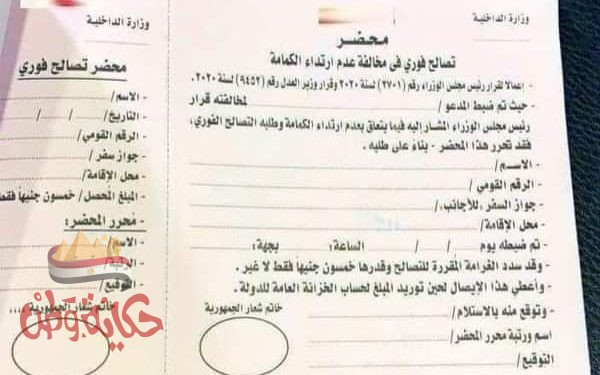 وزارة الداخلية
محضر
تصالح فوري في مخالفة عدم ارتداء الكمامة
- إعمالاً لقرار رئيس مجلس الوزراء رقم (٢٧٠١) لسنة ٢٠٢٠ وقرار وزير العدل رقم (٩٤٥٢) لسنة ٢٠٢٠.
- حيث تم ضبط المدعو / لمخالفته قرار
رئيس مجلس الوزراء المشار إليه فيما يتعلق بعدم ارتداء الكمامة وطلبه التصالح الفوري،
فقد تحرر هذا المحضر - بناءً على طلبه.
- الاسم/
- الرقم القومي/
- جواز السفر، للأجانب،/
- محل الإقامة/
- تم ضبطه يوم / / الساعة: بجهة:
- وقد سدد الغرامة المقررة للتصالح وقدرها خمسون جنيهاً فقط لا غير.
- وأعطي هذا الإيصال لحين توريد المبلغ لحساب الخزانة العامة للدولة.
- وتوقع منه بالاستلام/
خاتم شعار الجمهورية
اسم ورتبة محرر المحضر/
التوقيع/
وزارة الداخلية
محضر تصالح فوري
- الاسم/
- التاريخ/ / /
- الرقم القومي/
- جواز سفر/
- محل الإقامة/
- المبلغ المحصل/ خمسون جنيهاً فقط
- محرر المحضر:
- الاسم/
- الرتبة/
- التوقيع/
خاتم شعار الجمهورية ....
حكاية وطن